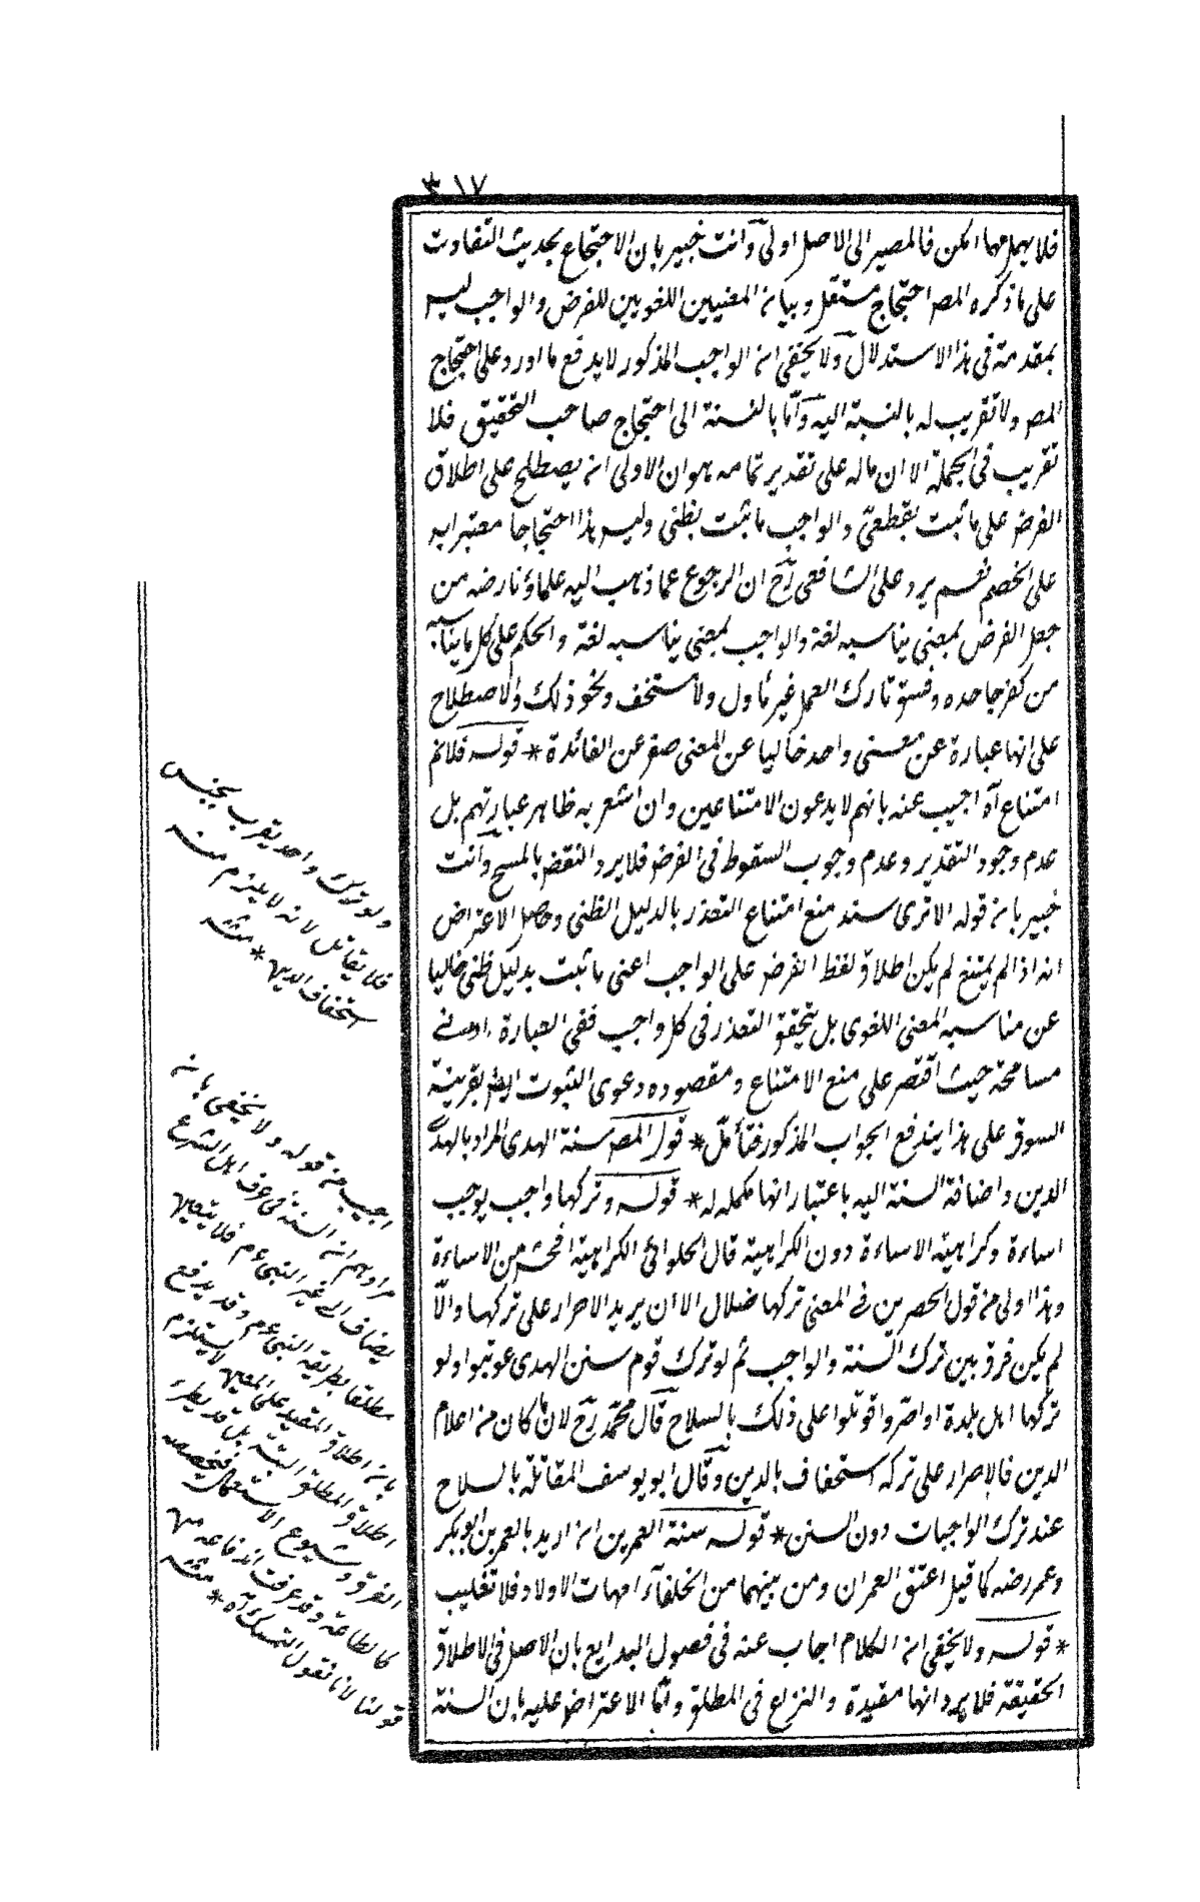 ٣١٧
فلا يهمل مهما امكن فالمصير الى الاصل اولى وانت خبير بان الاحتجاج بحديث التفاوت
على ما ذكره المص احتجاج مستقل وبيانه المعنيين اللغويين للفرض والواجب ليس
بمقدمة فى هذا الاستدلال ولا يخفى ان الواجب المذكور لا يدفع ما اورد على احتجاج
المص ولا تقريب له بالنسبة اليه واما بالنسبة الى احتجاج صاحب التحقيق فلا
تقريب فى الجملة الا ان ماله على تقدير تمامه هو ان الاولى ان يصطلح على اطلاق
الفرض على ما ثبت بقطعى والواجب ما ثبت بظنى وليس هذا احتجاجا معتبرا به
على الخصم نعم يرد على الشافعى رح ان الرجوع عما ذهب اليه علماؤنا رضه من
جعل الفرض بمعنى يناسبه لغة والواجب بمعنى يناسبه لغة والحكم على كل ما يناسبه
من كفر جاحده وفسق تارك العمل غير مأول ولا مستخف ونحو ذلك والاصطلاح
على انها عبارة عن معنى واحد خاليا عن المعنى صفر عن الفائدة * قوله فلانم
امتناع آه اجيب عنه بانهم لا يدعون الامتناعين وان اشعر به ظاهر عبارتهم بل
عدم وجود التقدير وعدم وجوب السقوط فى الفرض فلا يرد النقض بالمسح وانت
خبير بان قوله الا ترى سند منع امتناع التقدر بالدليل الظنى وحاصل الاعتراض
انه اذا لم يمتنع لم يكن اطلاق لفظ الفرض على الواجب اعنى ما ثبت بدليل ظنى خاليا
عن مناسبة المعنى اللغوى بل يتحقق التقدر فى كل واجب ففى العبارة ادنى
مسامحة حيث اقتصر على منع الامتناع ومقصوده دعوى الثبوت ايضا بقرينة
السوق على هذا يندفع الجواب المذكور فتأمل * قول المص سنة الهدى المراد بالهدى
الدين واضافة السنة اليه باعتبار انها مكملة له * قوله وتركها واجب يوجب
اساءة وكراهية الاساءة دون الكراهية قال الحلوائى الكراهية افحش من الاساءة
وهذا اولى من قول الحصر من فى المعنى تركها ضلال الا ان يريد الاصرار على تركها والا
لم يكن فرق بين ترك السنة والواجب ثم لو ترك قوم سنن الهدى عوتبوا ولو
تركها اهل بلدة او اصروا قوتلوا على ذلك بالسلاح قال محمد رح لان ما كان من اعلام
الدين فالاصرار على تركه استخفاف بالدين وقال ابو يوسف المقاتلة بالسلاح
عند ترك الواجبات دون السنن * قوله سنة العمرين ان اريد بالعمرين ابو بكر
وعمر رضه كما قيل اعتق العمران ومن بينهما من الخلفاء امهات الاولاد فلا تغليب
* قوله ولا يخفى ان الكلام اجاب عنه فى فصول البدايع بان الاصل فى الاطلاق
الحقيقة فلا يرد انها مقيدة والنزاع فى المطلق واما الاعتراض عليه بان السنة
ولو ترك واحد يقرب يحبس
فلا يقاتل لانه لا يلزم منه
استخفاف الدين * منه
اجيب من قوله ولا يخفى بانه
مراد هم ان السنة فى عرف اهل الشرع
يضاف الى غير النبى عم فلا يتعين
مطلقا بطريقة النبى عم وقد يدفع
بان اطلاق المقيد على المعين لا يستلزم
اطلاق المطلق البتة بل قد يطرء
العرف وشيوع الاستعمال فيخصصه
كالطاعة وقد عرفت اندفاعه من
قولنا لانا نقول التمسك آه * منه